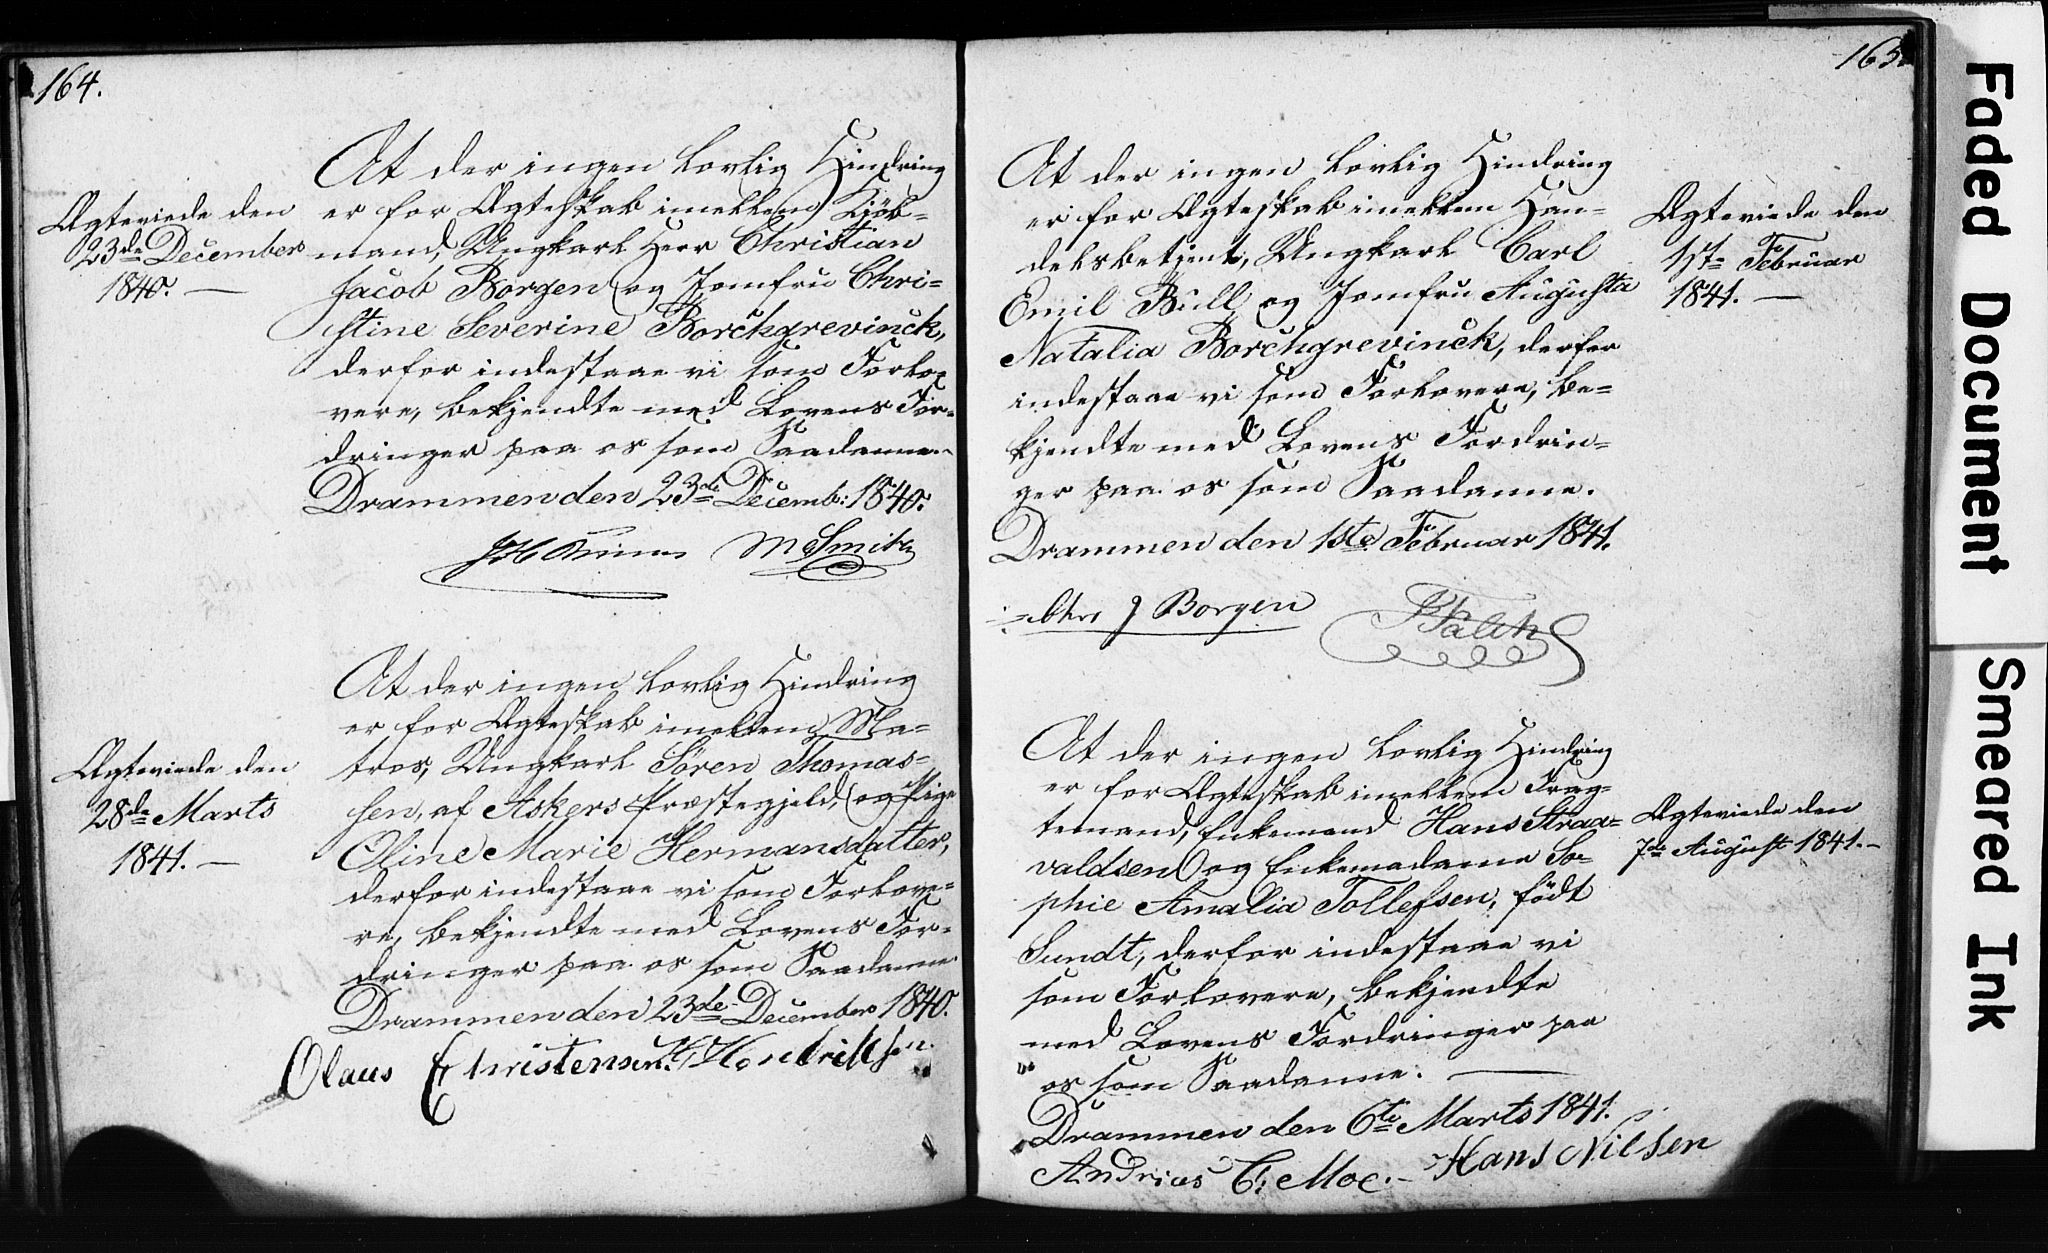 164.
Ægteviede den
23de December
1840. —
At der ingen lovlig Hindring
er for Ægteskab imellem Kjöb-
mand, Ungkarl Herr Christian
Jacob Borgen og Jomfru Chri-
stine Severine Borchgrevinck,
derfor indestaae vi som Forlo-
vere, bekjendte med Lovens For-
dringer paa os som Saadanne.
Drammen den 23de Decemb: 1840.
M Smith
Ægteviede den
28de Marts
1841. —
At der ingen lovlig Hindring
er for Ægteskab imellem Ma-
tros, Ungkarl Sören Thomas-
sen, af Askers Præstegjeld, og Pige
Oline Marie Hermansdatter,
derfor indestaae vi som Forlove-
re, bekjendte med Lovens For-
dringer paa os som Saadanne
Drammen den 23de December 1840.
Olaus Christensen. H. Hendriksen.
165.
At der ingen lovlig Hindring
er for Ægteskab imellem Han-
delsbetjent, Ungkarl Carl
Emil Bull og Jomfru Augusta
Natalia Borchgrevinck, derfor
indestaae vi som Forlovere, be-
kjendte med Lovens Fordrin-
ger paa os som Saadanne.
Drammen den 1ste Februar 1841.
Chr J Borgen
Ægteviede den
1ste Februar
1841. —
At der ingen lovlig Hindring
er for Ægteskab imellem Frag-
temand, Enkemand Hans Straa-
valdsen og Enkemadame So-
phie Amalia Tollefsen, födt
Sundt, derfor indestaae vi
som Forlovere, bekjendte
med Lovens Fordringer paa
os som Saadanne. —
Drammen den 6te Marts 1841.
Andrias C. Moe. - Hans Nilsen
Ægteviede den
7de August 1841. -
Faded Document
Smeared Ink